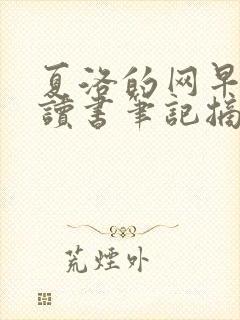 夏洛的网早
讀書筆記摘
荒煙外